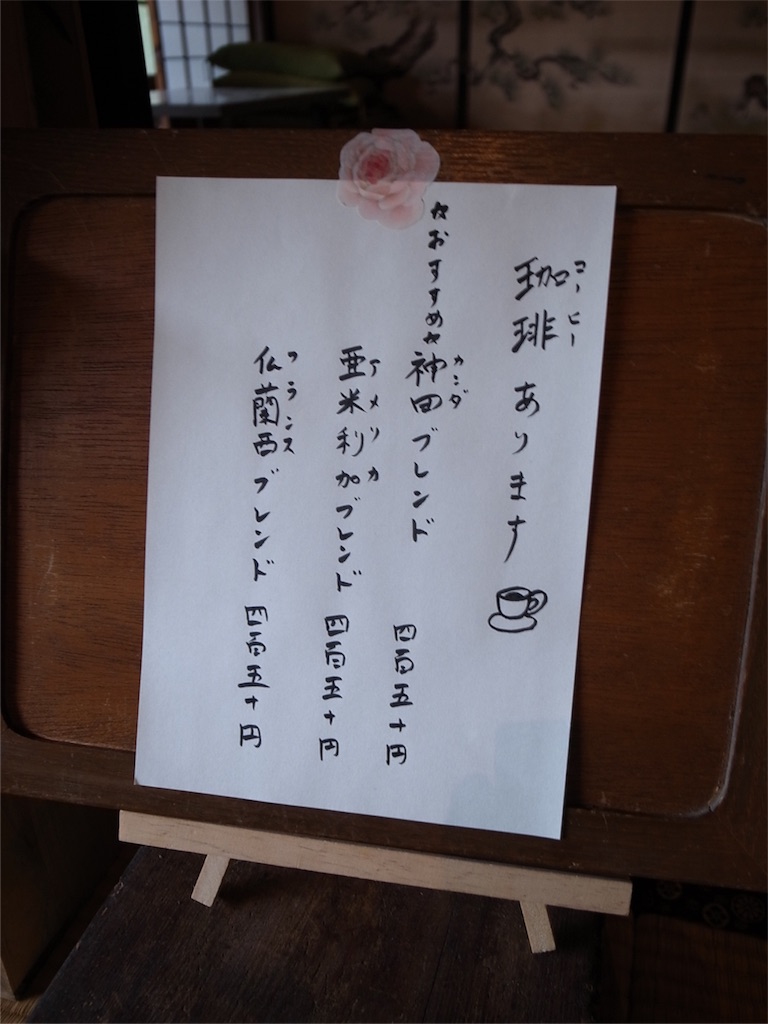 珈琲 あります
コーヒー
☆おすすめ☆
神田ブレンド 四百五十円
カンダ
亜米利加ブレンド 四百五十円
アメリカ
仏蘭西ブレンド 四百五十円
フランス